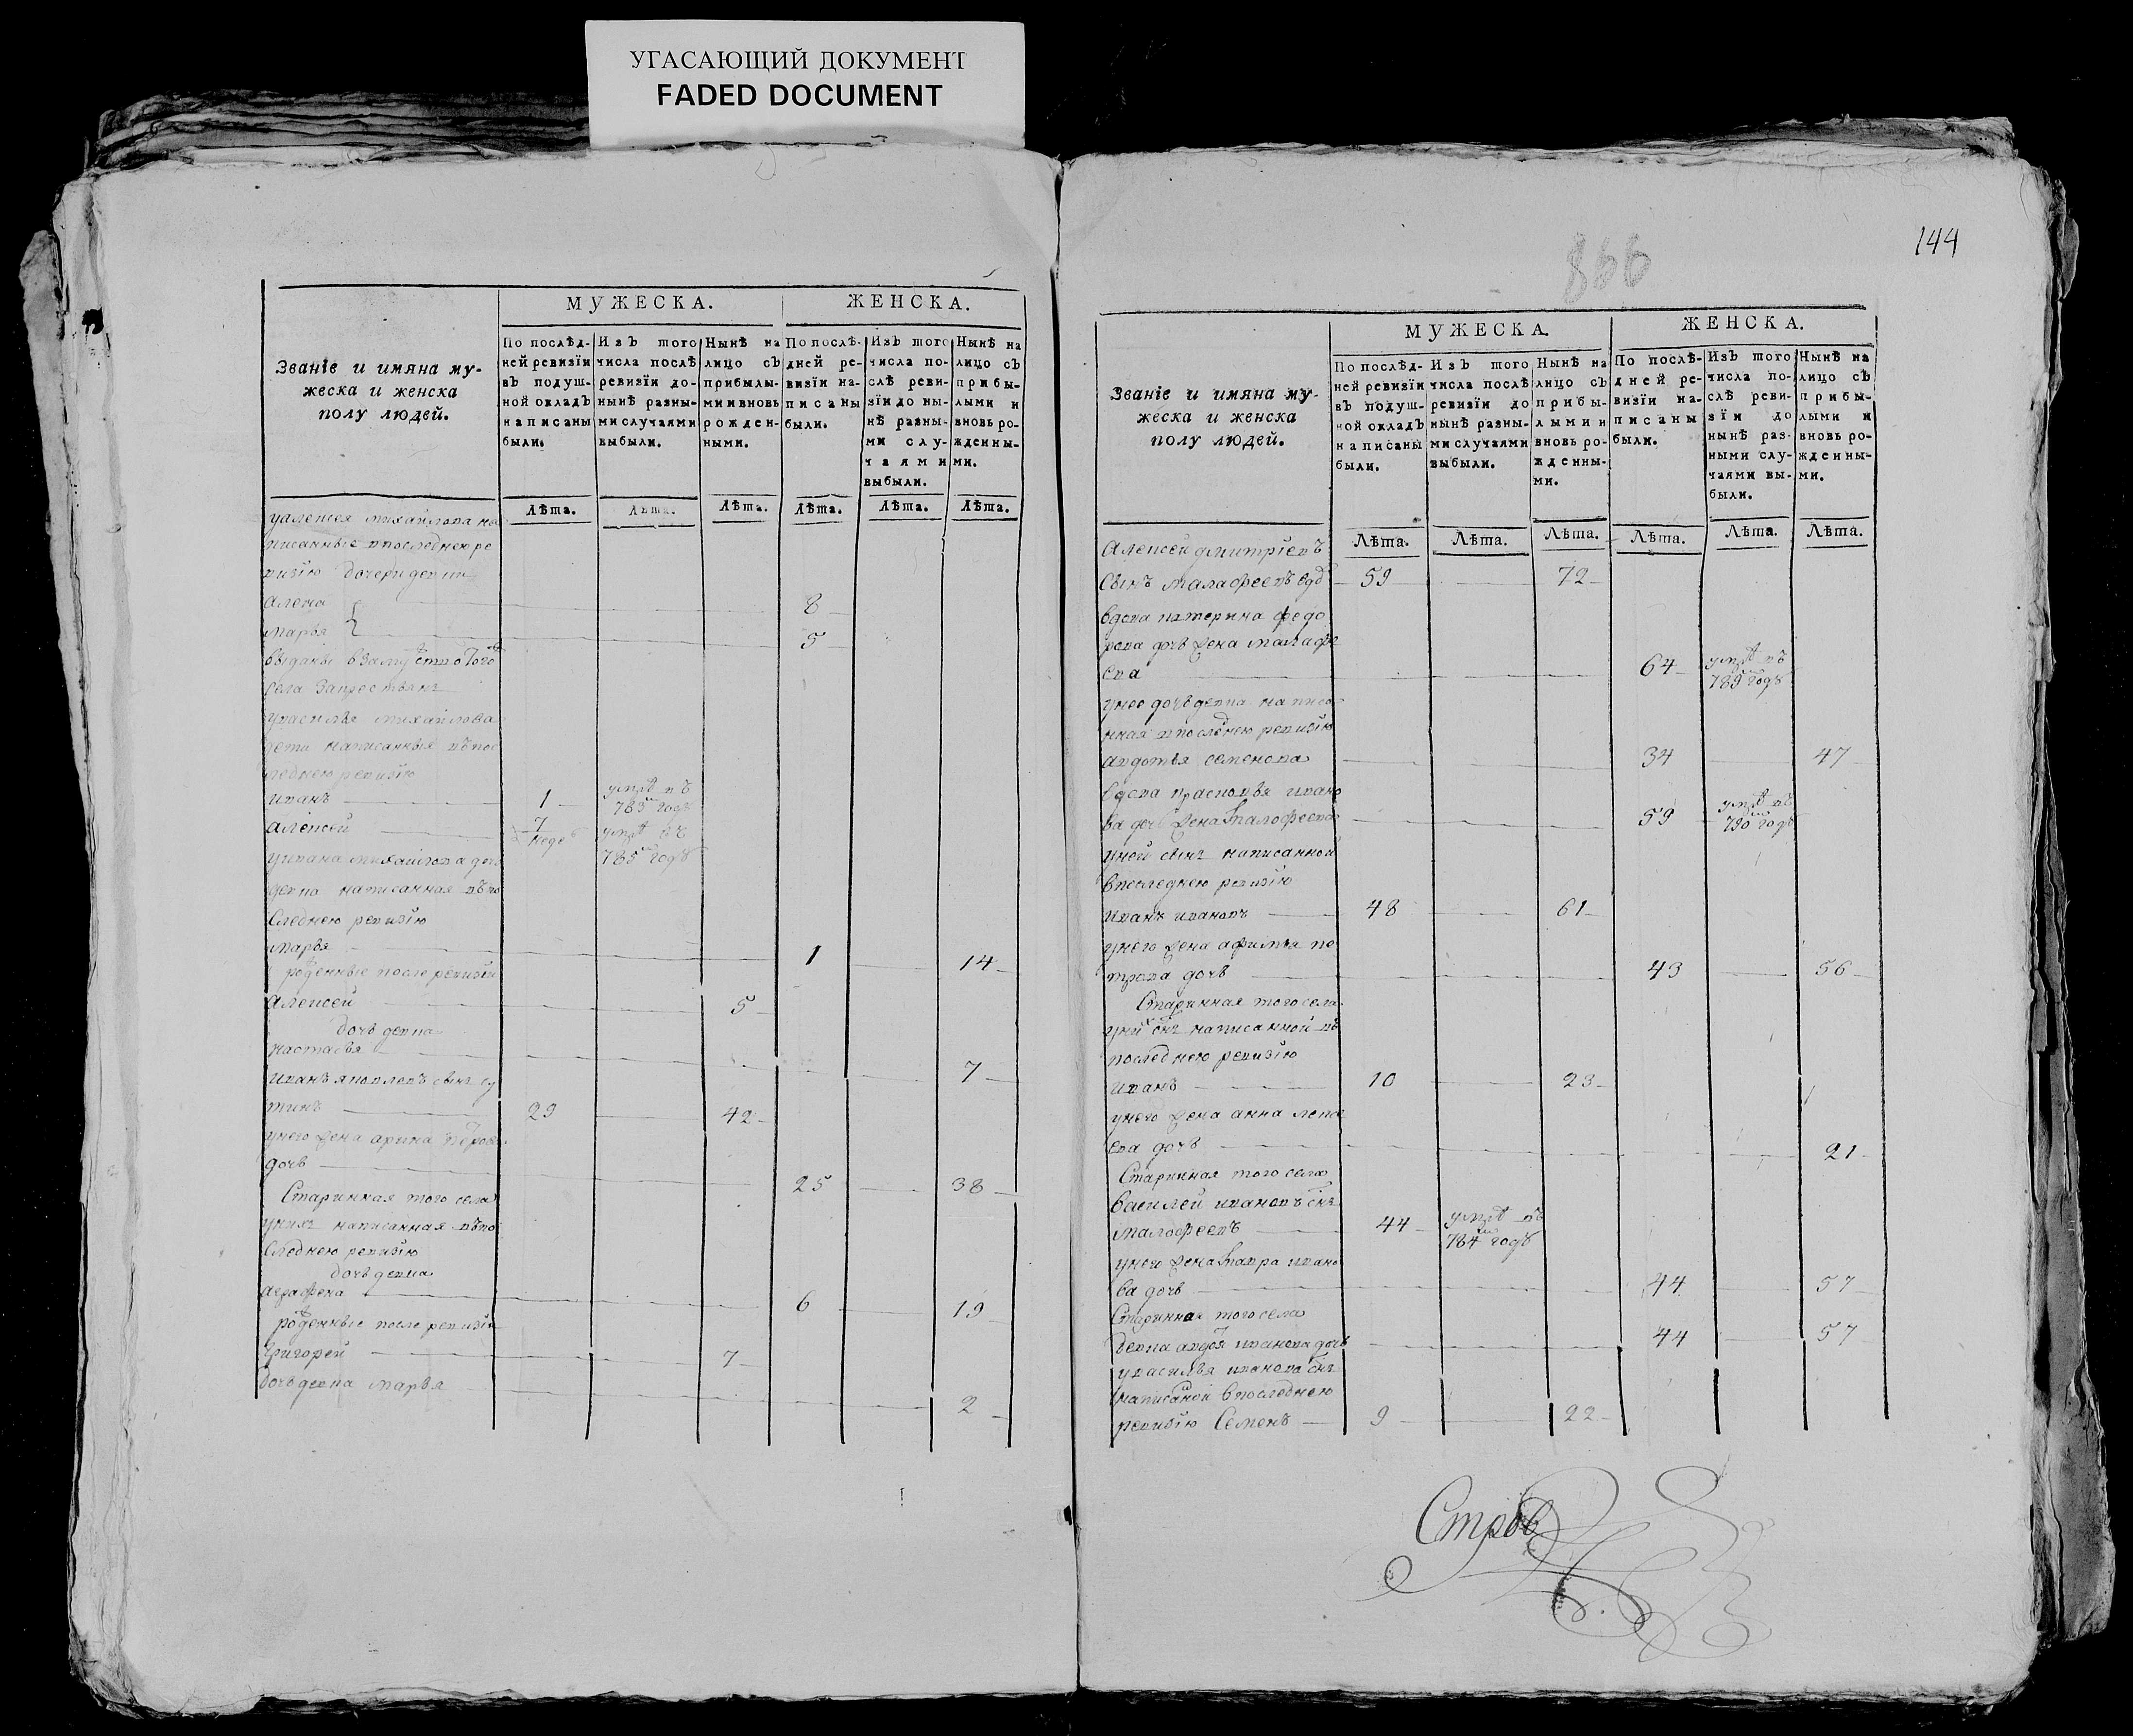 УГАСАЮЩИЙ ДОКУМЕНТ
FADED DOCUMENT
МУЖЕСКА. ЖЕНСКА.
Званїе и имяна му-
жеска и женска
полу людей.
По послѣд-
ней ревизїи
въ подуш-
ной окладъ
написаны
были.
Изъ того
числа послѣ
ревизїи до-
нынѣ разны-
ми случаями
выбыли.
Нынѣ на
лицо съ
прибылы-
ми и вновь
рожден-
ными.
По послѣ-
дней ре-
визїи на-
писаны
были.
Изъ того
числа по-
слѣ реви-
зїи до ны-
нѣ разны-
ми слу-
чаями
выбыли.
Нынѣ на
лицо съ
прибы-
лыми и
вновь ро-
жденны-
ми.
Лѣта. Лѣта. Лѣта. Лѣта. Лѣта. Лѣта.
уалексея михайлова на
писанные впоследнею ре
визїю дочери девки
алена 8
марья 5
выданы взамужство того
села
увасилья михайлова
дети написанныя въпос
леднею ревизїю
иванъ 1 умре въ
783м годе
алексей 7 недел умре въ
785м годе
уивана михайлова дочь
девка написанная въпо
следнею ревизїю
марья 1 14
рожденные после ревизїи
алексей 5
дочь девка
настасья 7
иванъ яковлевъ сынъ су
тинъ 29 42
унего жена арина петрова
дочь 25 38
Старинная того села
унихъ написанная въпо
следнею ревизїю
дочь девка
аграфена 6 19
рожденные после ревизїи
григорей 7
дочь девка марья 2
866
144
МУЖЕСКА. ЖЕНСКА.
Званїе и имяна му-
жеска и женска
полу людей.
По послѣд-
ней ревизїи
въ подуш-
ной окладъ
написаны
были.
Изъ того
числа послѣ
ревизїи до
нынѣ разны-
ми случаями
выбыли.
Нынѣ на
лицо съ
прибы-
лыми и
вновь ро-
жденны-
ми.
По послѣ-
дней ре-
визїи на-
писаны
были.
Изъ того
числа по-
слѣ реви-
зїи до
нынѣ раз-
ными слу-
чаями вы-
были.
Нынѣ на
лицо съ
прибы-
лыми и
вновь ро-
жденны-
ми.
Лѣта. Лѣта. Лѣта. Лѣта. Лѣта. Лѣта.
Алексей дмитрїевъ
сынъ малафеевъ вдов 59 72
вдова катерина федо
рова дочь жена малафе
ева 64 умре въ
789м годе
унее дочь девка написа
нная впоследнею ревизїю
авдотья семенова 34 47
вдова прасковья ивано
ва дочь жена малофеева 59 умре въ
790м годе
уней сынъ написанной
впоследнею ревизїю
иванъ ивановъ 48 61
унего жена афимья пе
трова дочь 43 56
Старинная того села
уних снъ написанной въ
последнею ревизїю
иванъ 10 23
унего жена анна
ева дочь 21
Старинная того села
василей ивановъ снъ
малофеевъ 44 умре въ
784м годе
унего жена мавра ивано
ва дочь 44 57
Старинная того села
девка авдотя иванова дочь 44 57
увасилья иванова снъ
написаной впоследнею
ревизїю Семенъ 9 22